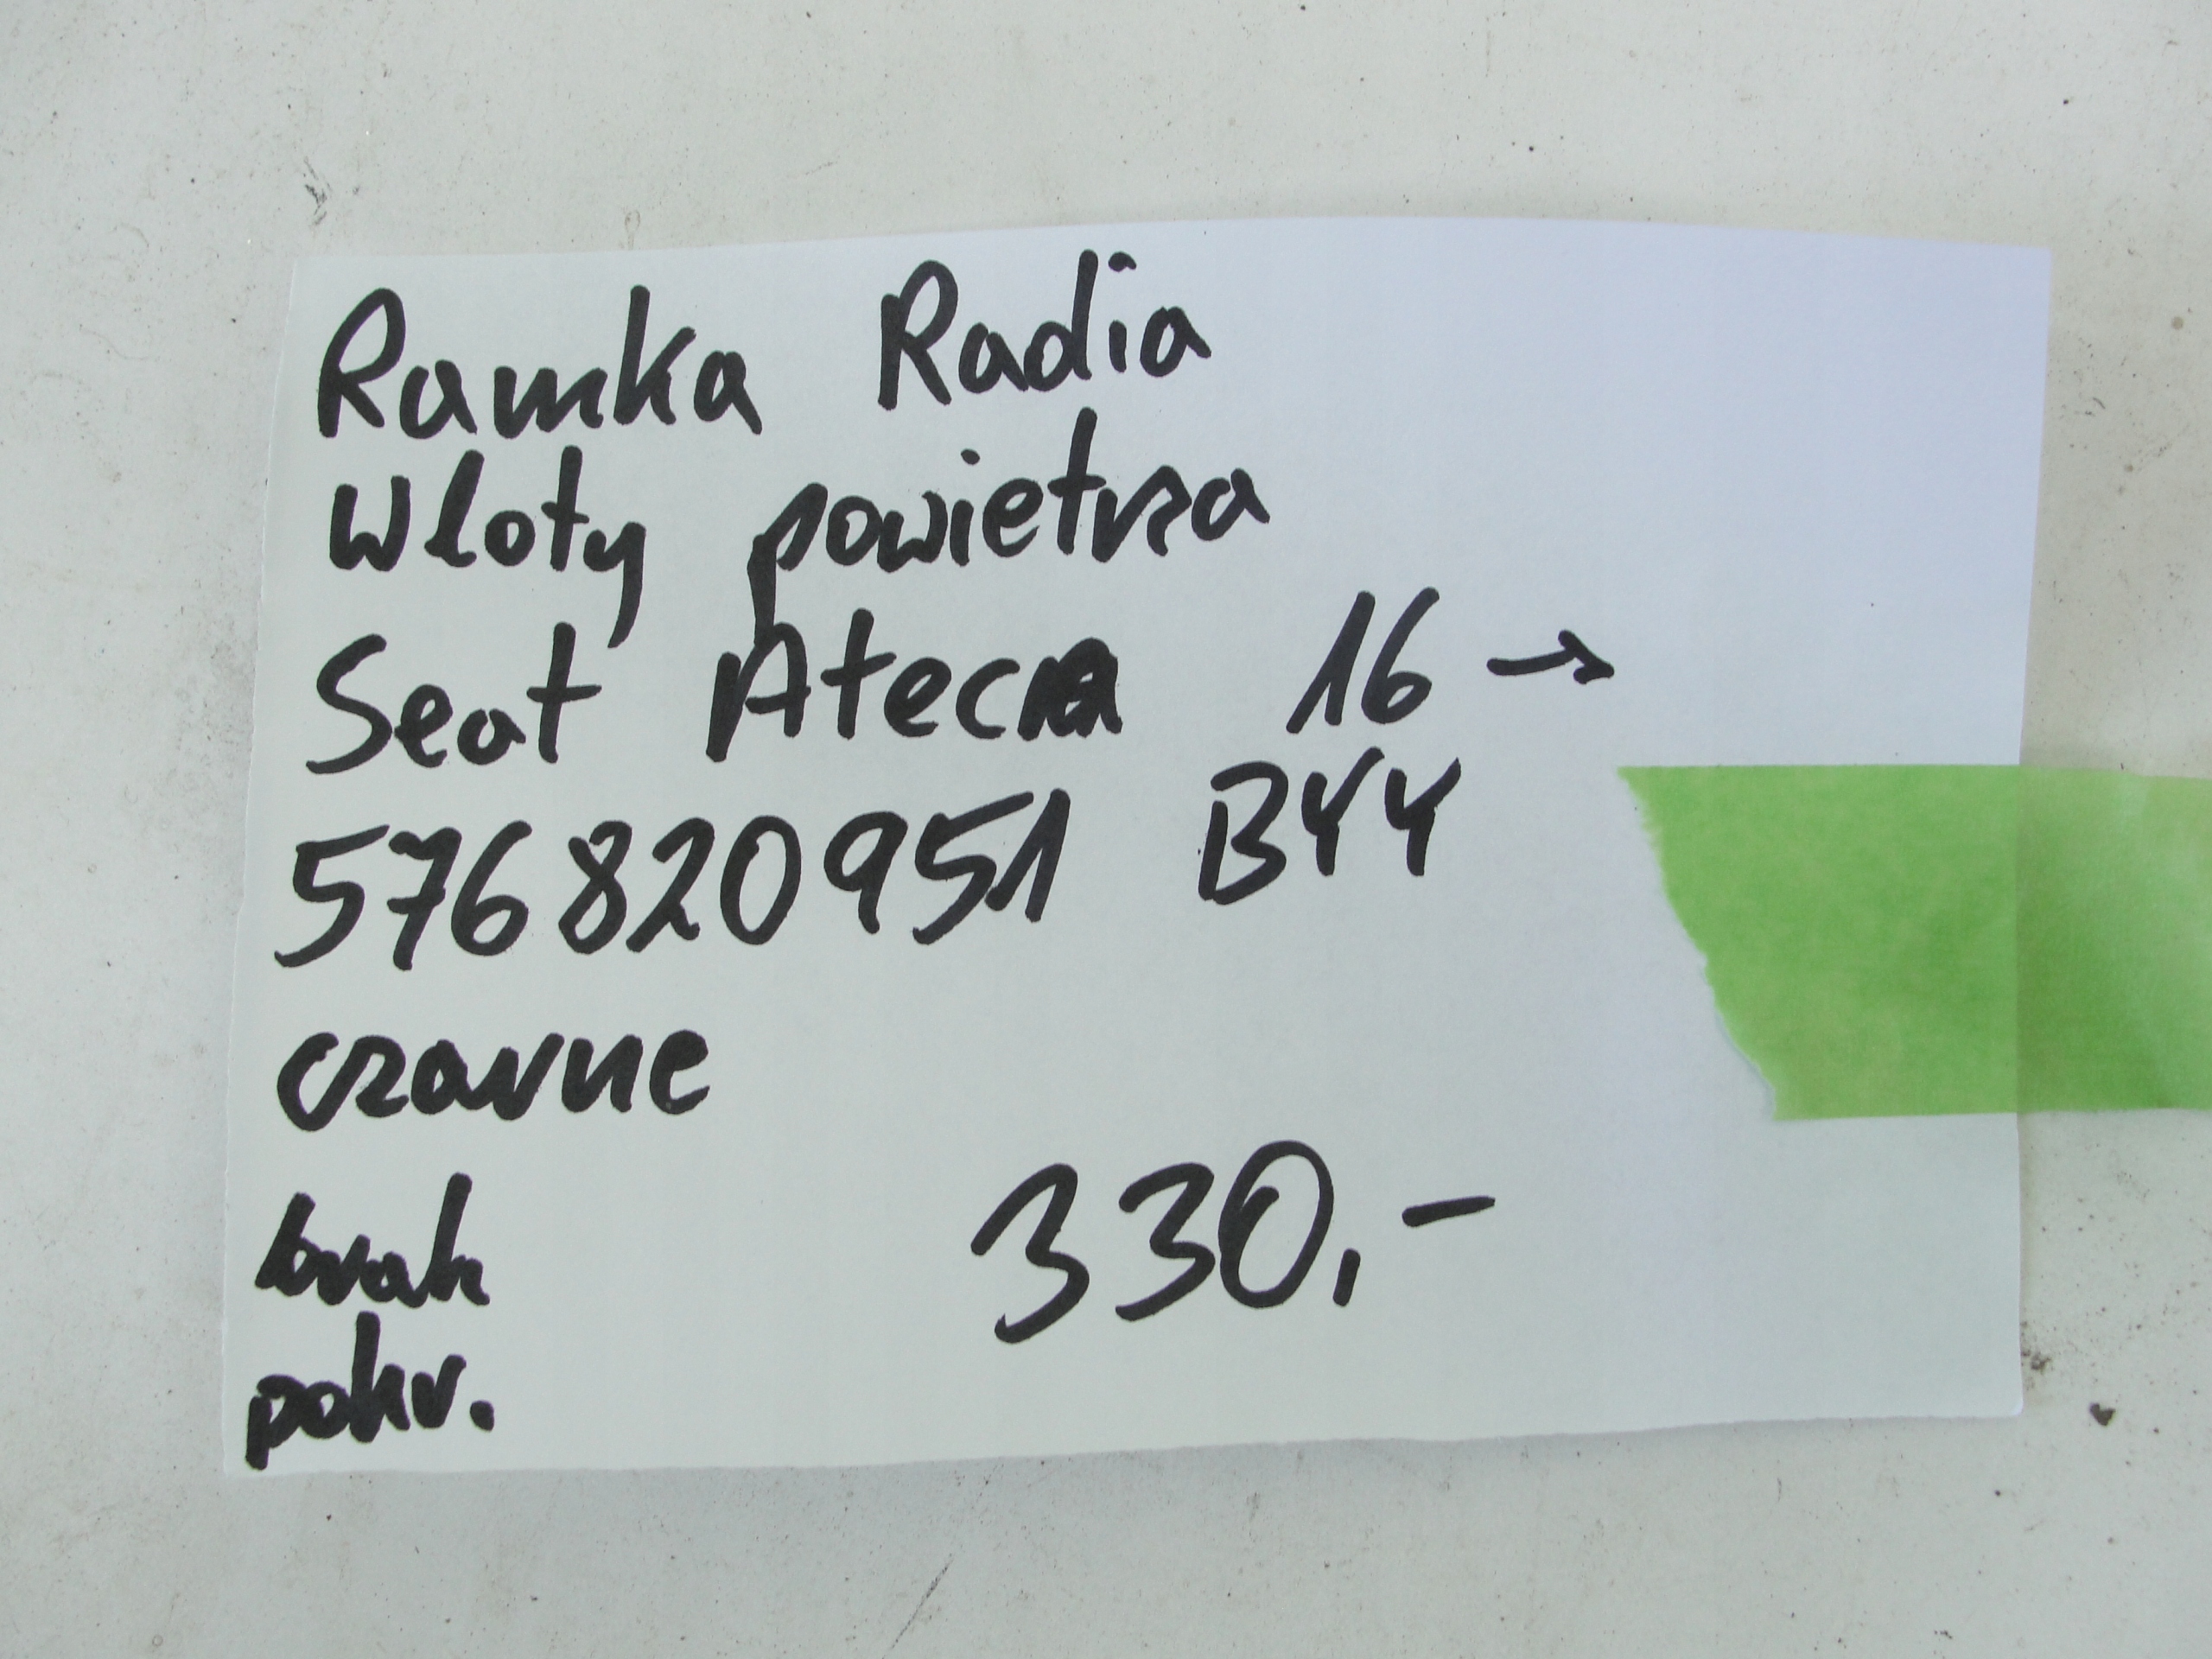 Ramka Radia
Wloty powietrza
Seat Ateca 16 →
576820951 B44
czarne
brak 330,-
pokr.